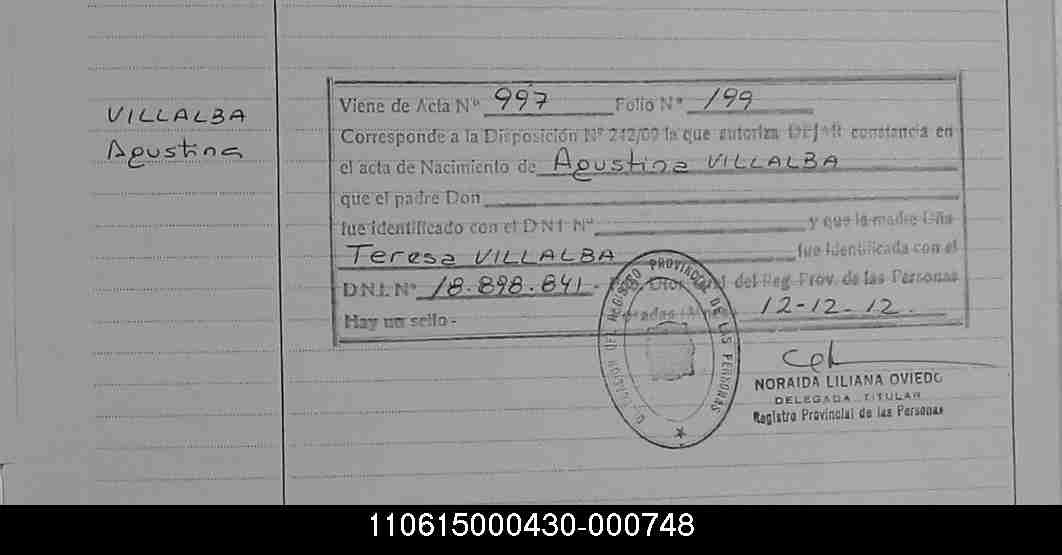 VILLALBA
Agustina
Viene de Acta Nº 997 Folio Nº 199
Corresponde a la Disposición Nº 242/09 la que autoriza DEJAR constancia en
el acta de Nacimiento de Agustina VILLALBA
que el padre Don
fue identificado con el DNI Nº y que la madre Dña
Teresa VILLALBA fue identificada con el
D.N.I. Nº 18.898.841.- Dtor. Gral. del Reg. Prov. de las Personas
Hay un sello.- Posadas 12-12-12.
REGISTRO PROVINCIAL DE LAS PERSONAS
NORAIDA LILIANA OVIEDO
DELEGADA TITULAR
Registro Provincial de las Personas
110615000430-000748